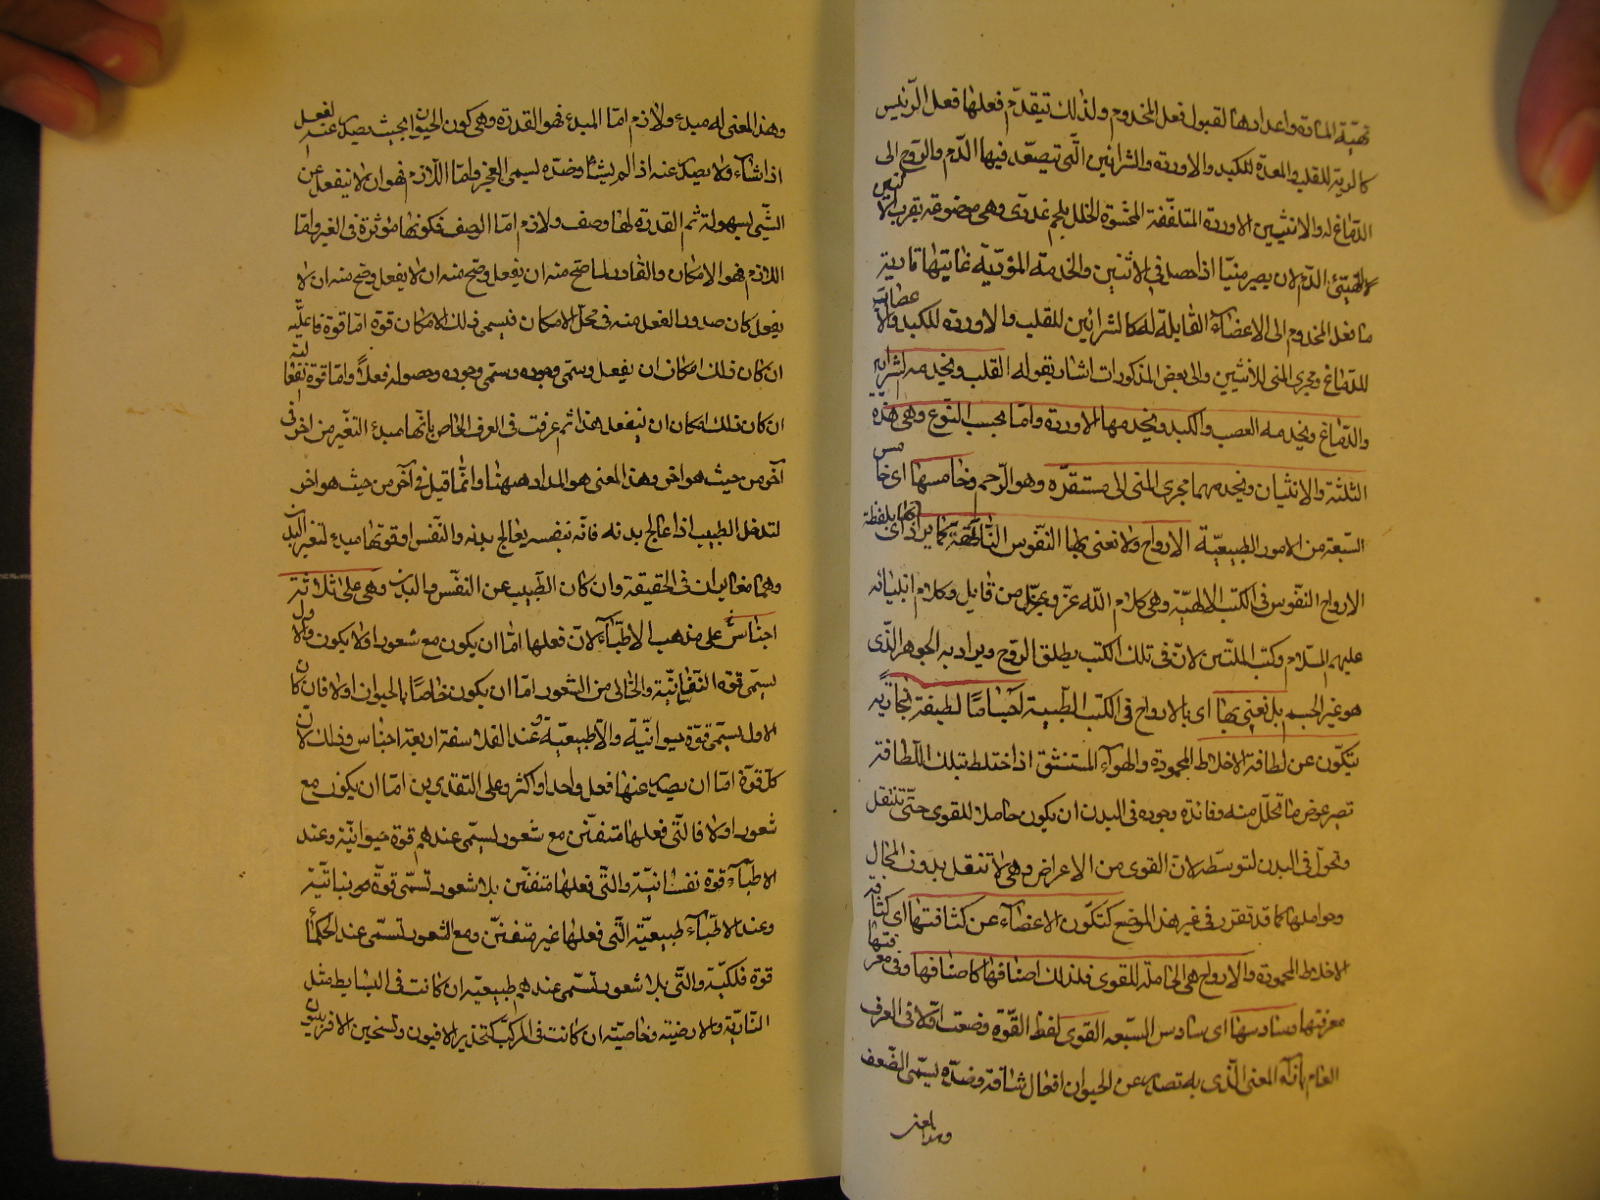 تهيئة المادة واعدادها لقبول فعل المخدوم ولذلك تيقدم فعلها فعل الرئيس
كالرية للقلب والمعدة للكبد والاوردة والشرائين التى تيصعد فيها الدم والروح الى
الدماغ له والانثيين الاوردة المتلففة المحشوة الخلل بلحم غددى وهى موضوعة بقرب الانثيين
لتهيئ الدم لان يصير منيا اذا حصل فى الانثيين والخدمة المؤدية غايتها تادية
ما فعل المخدوم الى الاعضاء القابلة له كالشرائين للقلب والاوردة للكبد والاعصاب
للدماغ ومجرى المنى للانثيين والى بعض المذكورات اشار بقوله القلب ويخدمه الشرايين
والدماغ ويخدمه العصب والكبد ويخدمها الاوردة واما بحسب النوع وهى هذه
الثلثة والانثيان ويخدمهما مجرى المنى الى مستقره وهو الرحم وخامسها اى خامس
السبعة من الامور الطبيعية الارواح ولا نعنى بها النفوس الناطقة كما يراد اى كما بلفظة
الارواح النفوس فى الكتب الالهية وهى كلام الله عز وجل من قايل وكلام انبيائه
عليهم السلام وكتب المليين لان فى تلك الكتب يطلق الروح ويراد به الجوهر الذى
هو غير الجسم بل نعنى بها اى بالارواح فى الكتب الطبية اجساما لطيفة بخارية
يتكون عن لطافة الاخلاط المحمودة والهواء المستنشق اذا اختلط بتلك اللطافة
تصير عوض ما تحلل منه وفائدة وجوده فى البدن ان يكون حاملا للقوى حتى تنتقل
وتجول فى البدن لتوسطه لان القوى من الاعراض وهى لا تنتقل بدون المحال
وحواملها كما قد تقرر فى غير هذا الموضع كتكون الاعضاء عن كثافتها اى كثافة
الاخلاط المحمودة والارواح هى الحاملة للقوى فلذلك اصنافها كاصنافها وفى معرفتها
معرفتها وسادسها اى سادس السبعه القوى لفظ القوة وضعت اولا فى العرف
العام بانه المعنى الذى به تصدر عن الحيوان افعال شاقة وضده يسمى الضعف
وهذا المعنى
وهذا المعنى له مبدء ولازم اما المبدء فهو القدرة وهى كون الحيوان بحيث يصدر عنه الفعل
اذا شاء ولا يصدر عنه اذا لم يشأ وضده يسمى العجز واما اللازم فهو ان لا ينفعل عن
الشئ بسهولة ثم القدرة لها وصف ولازم اما الوصف فكونها مؤثرة فى الغير واما
اللازم فهو الامكان والقادر لما صح منه ان يفعل وصح منه ان لا يفعل وصح منه ان لا
يفعل كان صدور الفعل منه فى محل الامكان فيسمى ذلك الامكان قوة اما قوة فاعلية
ان كان ذلك امكان ان يفعل ويسمى وجوده وحصوله فعلا واما قوة انفعالية
ان كان ذلك امكان ان ينفعل هذا ثم عرفت فى العرف الخاص بانها مبدء التغير من آخر فى
آخر من حيث هو اخر وهذا المعنى هو المراد ههنا وانما قيل فى آخر من حيث هو اخر
لتدخل الطبيب اذا عالج بدنه فانه بنفسه يعالج بدنه والنفس او قوتها مبدء لتغير البدن
وهما مغايران فى الحقيقة وان كان الطبيب عن النفس والبدن وهى على ثلاثة
اجناس على مذهب الاطباء لان فعلها اما ان يكون مع شعور او لا يكون والاول
يسمى قوة النفسانية والخالى من الشعور اما ان يكون خاصا بالحيوان او لا فان كان
الاول يسمى قوة حيوانية والا طبيعية وعند الفلاسفة اربعة اجناس وذلك لان
كل قوة اما ان يصدر عنها فعل واحد او اكثر وعلى التقديرين اما ان يكون مع
شعور او لا فالتى فعلها متفنن مع شعور يسمى عندهم قوة حيوانية وعند
الاطباء قوة نفسانية والتى فعلها متفنن بلا شعور تسمى قوة نباتية
وعند الاطباء طبيعية التى فعلها غير متفنن ومع الشعور تسمى عند الحكماء
قوة فلكية والتى بلا شعور تسمى عندهم طبيعيه ان كانت فى البسايط مثل
النارية والارضية وخاصية ان كانت فى المركب كتخدير الافيون وتسخين الافربيون